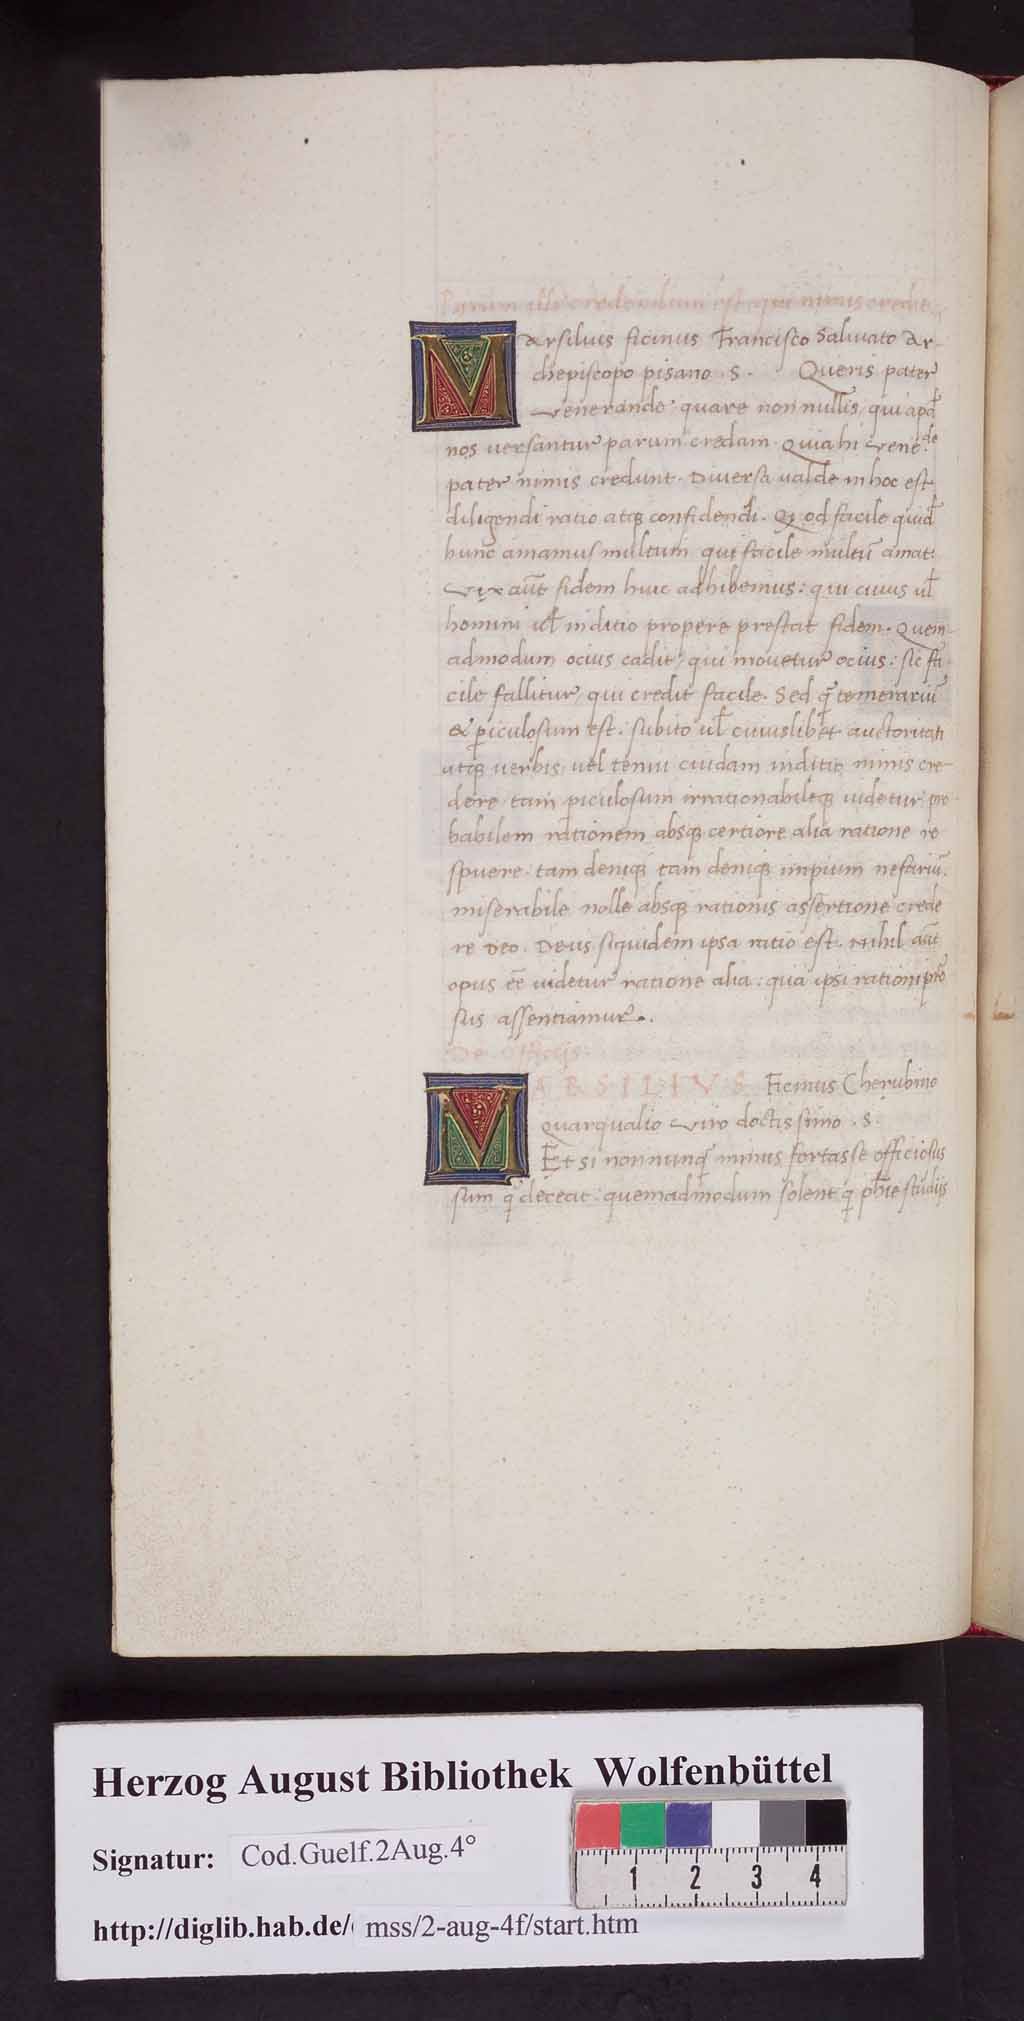 Parum illi credendum est qui nimis credit
Marsilius ficinus Francisco Saluiato Ar-
chiepiscopo pisano . s . Queris pater
venerande quare non nullis, qui apđ
nos versantur parum credam. Quia hi vene.de
pater nimis credunt. Diversa valde in hoc est
diligendi ratio atq; confidendi. Qđ od facile quiđ
hunc amamus multum qui facile multū amat:
Vix aūt fidem huic adhibemus: qui cuius ul̄
homini ul̄ inditio propere prestat fidem. Quem-
admodum ocius cadit, qui mouetur ocius: sic fa-
cile fallitur, qui credit facile. Sed q̄ temerariū
& piculosum est. subito ul̄ cuiuslibet auctoritati
atq; verbis, vel tenui cuidam inditio nimis cre-
dere tam piculosum irrationabileq; uidetur pro
babilem rationem absq; certiore alia ratione re
spuere. tam deniq; tam deniq; impium nefariū.
miserabile nolle absq; rationis assertione crede
re Deo. Deus siquidem ipsa ratio est. Nihil aūt
opus eē uidetur ratione alia: qua ipsi rationi pro
sus assentiamur.
De officijs.
MARSILIVS Ficinus Cherubino
Quarqualio viro doctissimo . s.
Et si non nunq̄ minus fortasse officiosus
sum q̄ deceat: quemadmodum solent q̄ phie studijs
Herzog August Bibliothek Wolfenbüttel
Signatur: Cod.Guelf.2Aug.4°
1 2 3 4
http://diglib.hab.de/ mss/2-aug-4f/start.htm